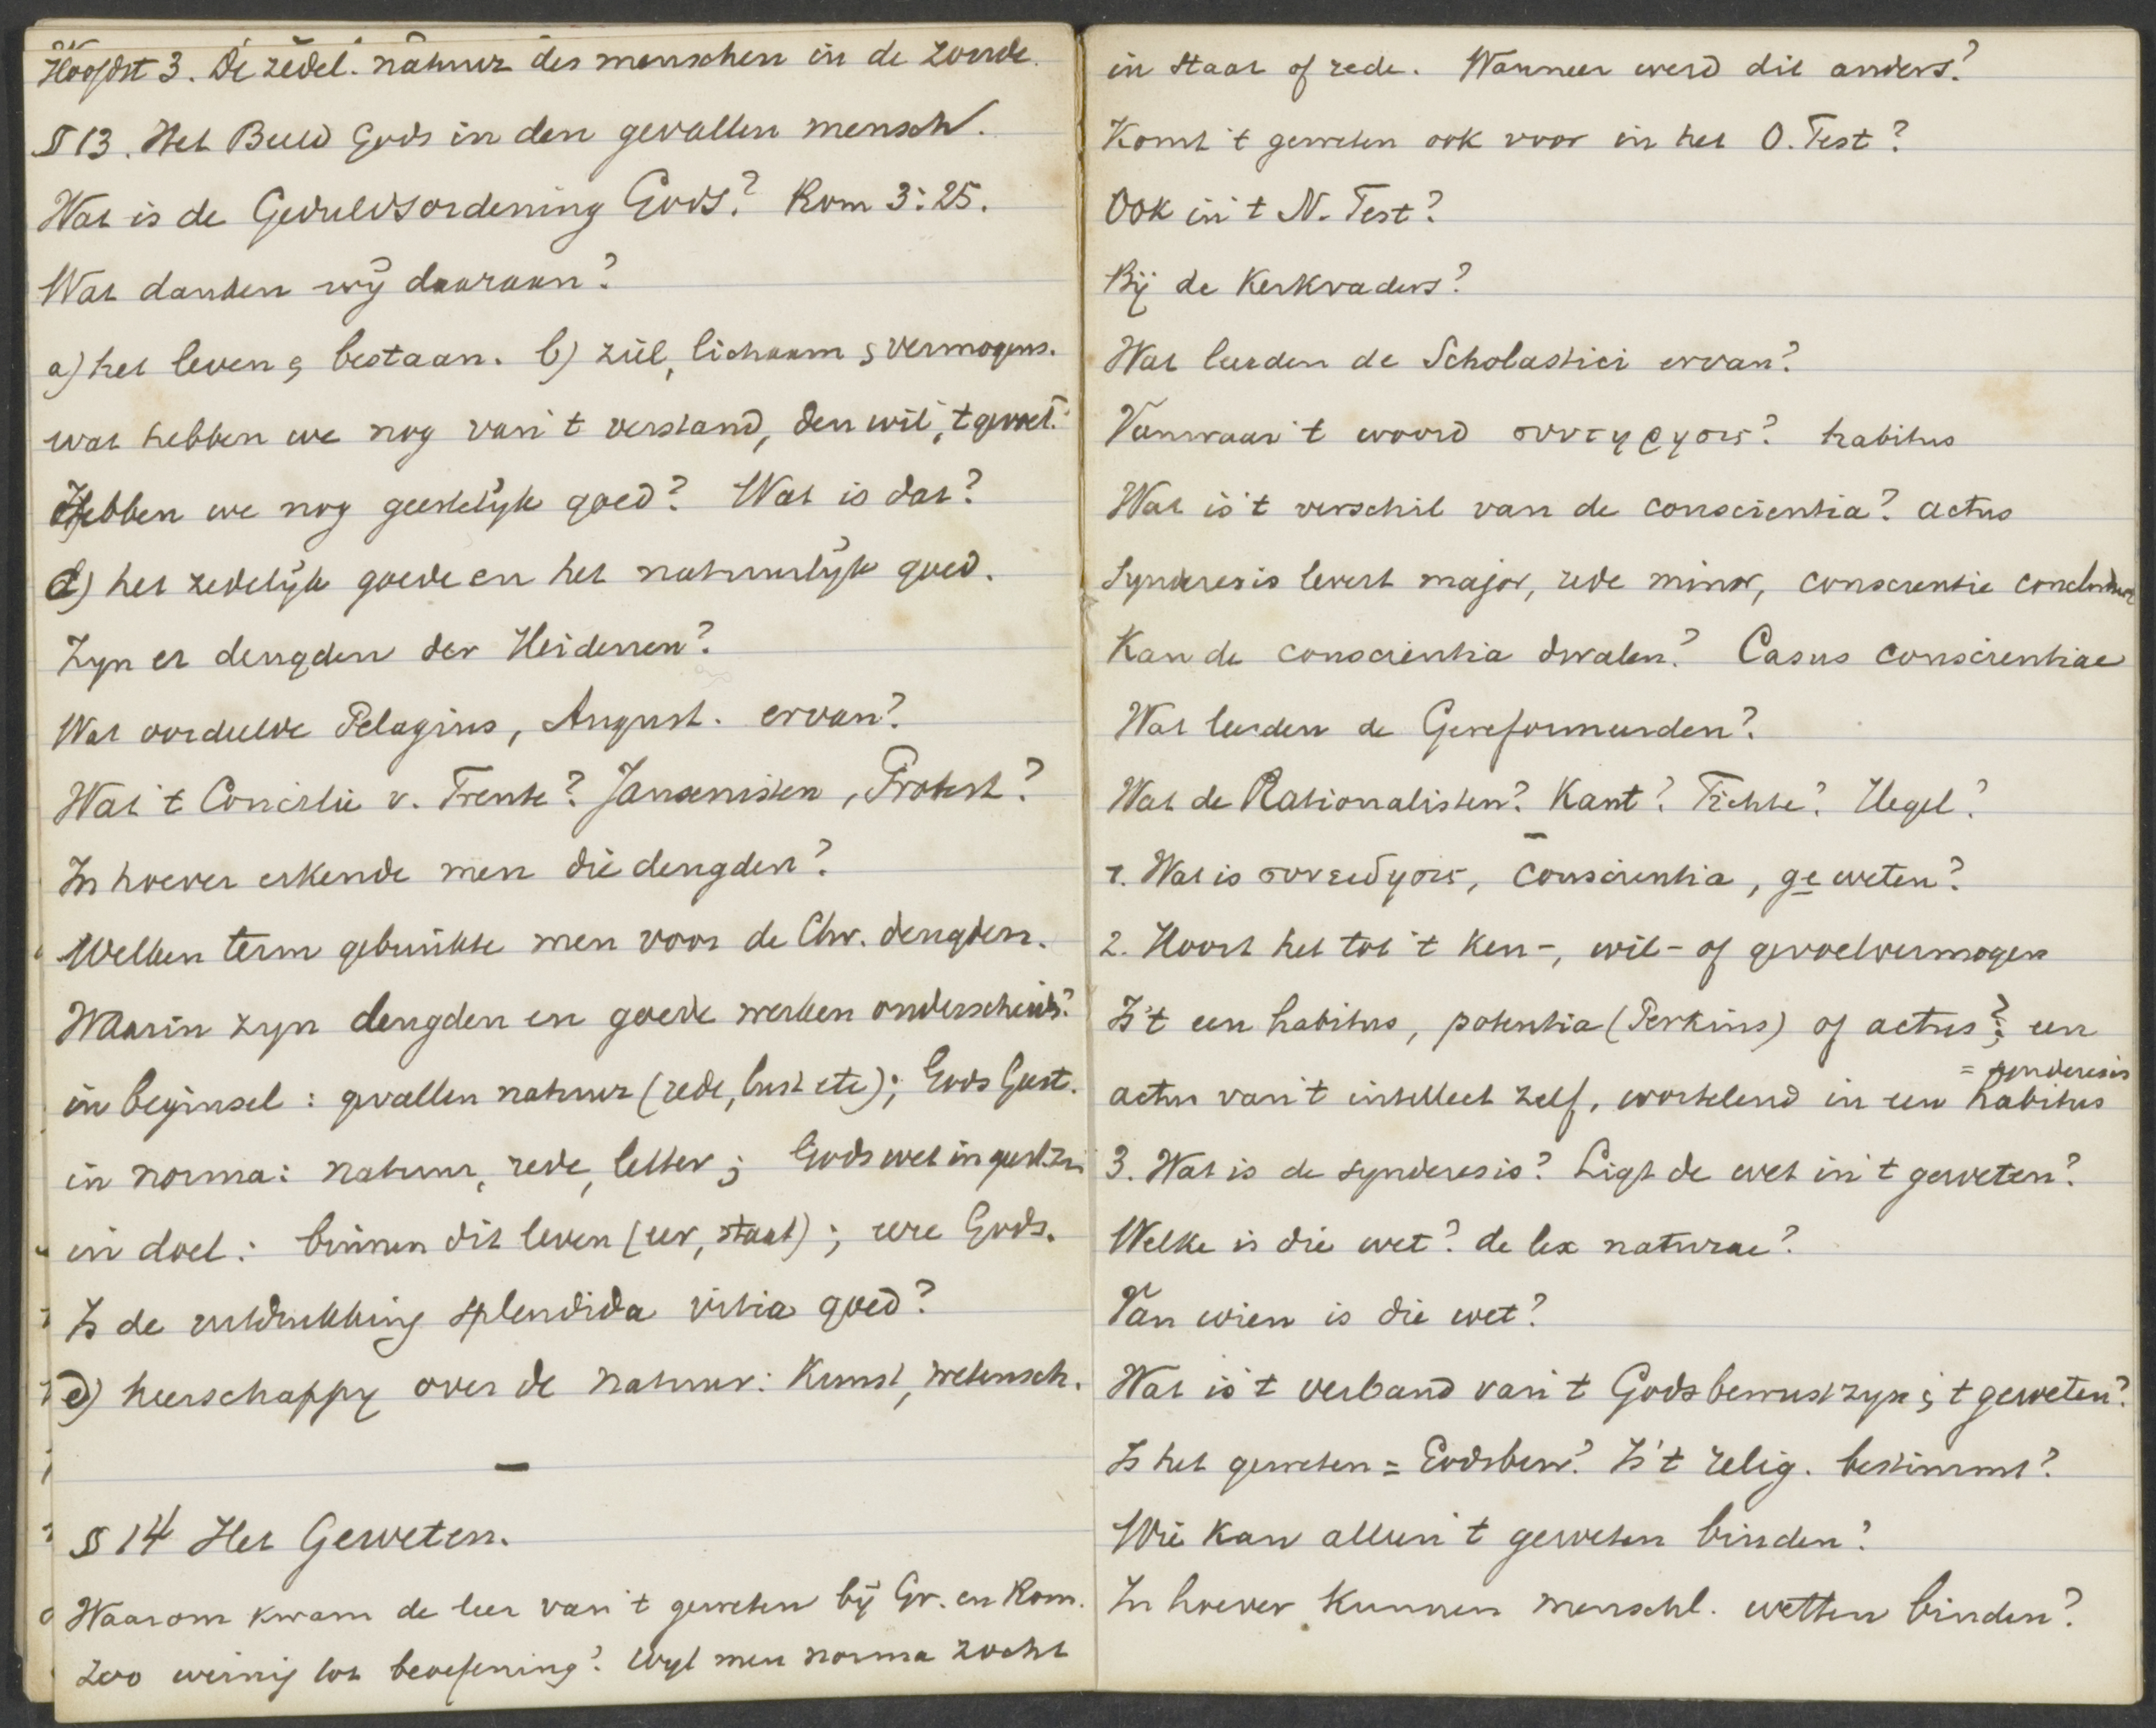 Hoofdst 3. De zedel. natuur des menschen in de zonde.
§ 13. Het Beeld Gods in den gevallen mensch.
Wat is de Geduldsordening Gods? Rom 3:25.
Wat danken wij daaraan?
a) het leven & bestaan. b) ziel, lichaam & vermogens.
wat hebben we nog van 't verstand, den wil, 't gewet.
Hebben we nog geestelijk goed? Wat is dat?
d) het zedelijk goede en het natuurlijk goed.
Zyn er deugden der Heidenen?
Wat oordeelde Pelagius, August. ervan?
Wat 't Concilie v. Trente? Jansenisten, Protest?
In hoever erkende men die deugden?
Welken term gebruikte men voor de Chr. deugden.
Waarin zyn deugden en goede werken onderscheid.?
in beginsel: gevallen natuur (rede, lust etc); Gods Geest.
in norma: natuur, rede, letter; Gods wet in geest. zin
in doel: binnen dit leven (eer, staat); eere Gods.
Is de uitdrukking splendida vitia goed?
e) heerschappy over de natuur: Kunst, wetensch.
—
§ 14 Het Geweten.
Waarom kwam de leer van 't geweten bij Gr. en Rom.
zoo weinig tot beoefening? Wyl men norma zocht
in staat of rede. Wanneer werd dit anders?
Komt 't geweten ook voor in het O. Test?
Ook in 't N. Test?
Bij de Kerkvaders?
Wat leerden de Scholastici ervan?
Vanwaar 't woord συντηρησις? habitus
Wat is 't verschil van de conscientia? actus
Synderesis levert major, rede minor, conscientie conclusie
Kan de conscientia dwalen? Casus conscientiae
Wat leerden de Gereformeerden?
Wat de Rationalisten? Kant? Fichte? Hegel?
—
1. Wat is συνειδησις, conscientia, geweten?
2. Hoort het tot 't ken-, wil- of gevoelvermogen
Is 't een habitus, potentia (Perkins) of actus?; een
= synderesis
actus van 't intellect zelf, wortelend in een habitus
3. Wat is de synderesis? Ligt de wet in 't geweten?
Welke is die wet? de lex naturae?
Van wien is die wet?
Wat is 't verband van 't Godsbewustzyn & 't geweten?
Is het geweten = Godsbew? Is 't relig. bestimmt?
Wie kan alleen 't geweten binden?
In hoever kunnen menschl. wetten binden?